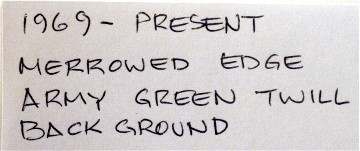 1969 - PRESENT
MERROWED EDGE
ARMY GREEN TWILL
BACKGROUND